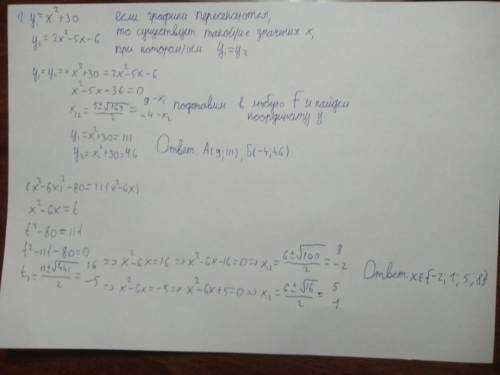 1) y₁ = x² + 30 если графики пересекаются,
y₂ = 2x² - 5x - 6 то существует такое/ие значения x,
при котором/ых y₁ = y₂
y₁ = y₂ => x² + 30 = 2x² - 5x - 6
x² - 5x - 36 = 0
x₁,₂ = (5 ± √169)/2 = 9 - x₁ подставим в любую F и найдем
-4 - x₂ координату y
y₁ = x₁² + 30 = 111
y₂ = x₂² + 30 = 46 Ответ: A(9; 111), Б(-4, 46)
(x² - 6x)² - 80 = 11(x² - 6x)
x² - 6x = t
t² - 80 = 11t
t² - 11t - 80 = 0
t₁,₂ = (11 ± √441)/2 = 16 => x² - 6x = 16 => x² - 6x - 16 = 0 => x₁,₂ = (6 ± √100)/2 = 8 -2
-5 => x² - 6x = -5 => x² - 6x + 5 = 0 => x₁,₂ = (6 ± √16)/2 = 5 1
Ответ: x ∈ {-2, 1, 5, 8}